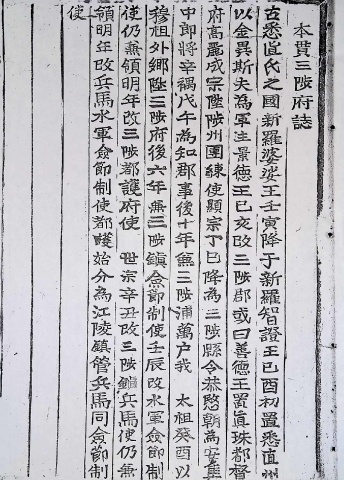 本貫三陟府誌
古悉直氏之國新羅婆娑王壬寅降于新羅智證王己酉初置悉直州
以金異斯夫為軍主景德王己亥改三陟郡或曰善德王置眞珠都督
府高麗成宗陞陟州團練使顯宗丁巳降為三陟縣令恭愍朝為安集
中郎將辛禑戊午為知郡事後十年無三陟浦萬户我 太祖癸酉以
穆祖外鄉陞三陟府後六年兼三陟鎭僉節制使壬辰改水軍僉節制
使仍兼領明年改三陟都護府使 世宗辛丑改三陟鎭兵馬使仍兼
領明年改兵馬水軍僉節制使都護始分為江陵鎮管兵馬同僉節制
使